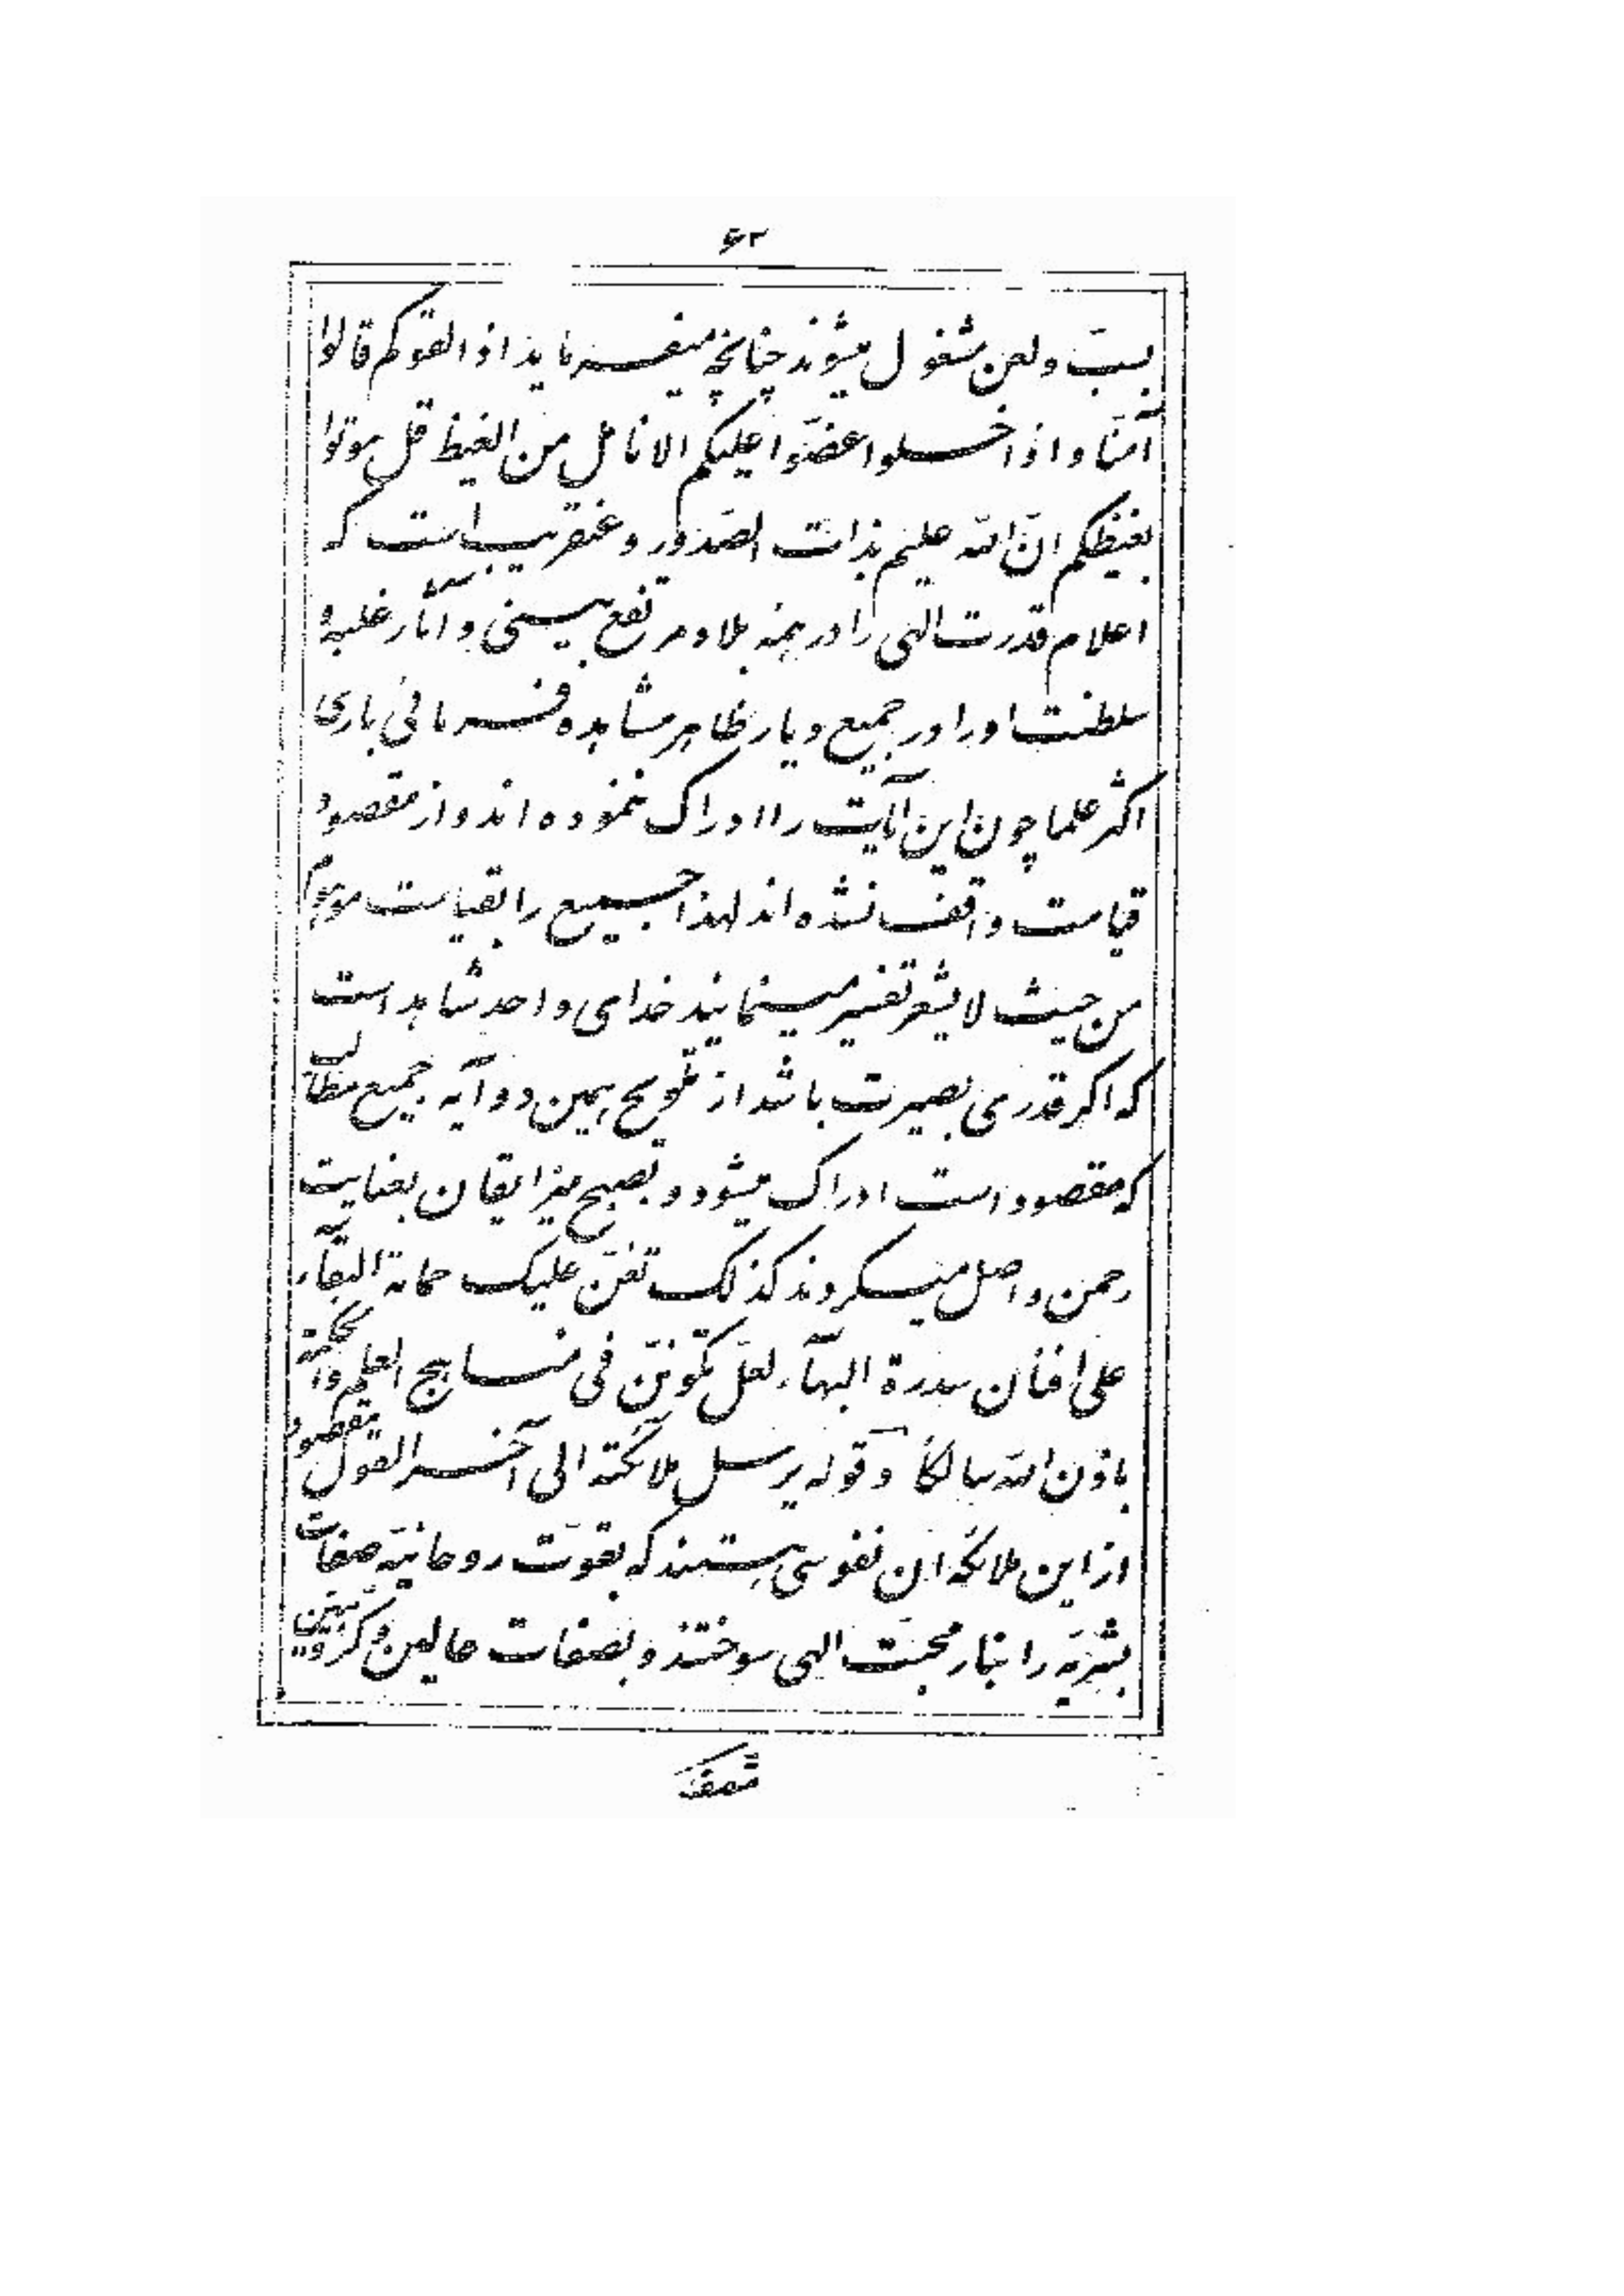 ۶۲
بسبّ و لعن مشغول میشوند چنانچه میفرماید اذا لقوکم قالوا
آمنّا و اذا خلوا عضّوا علیکم الانامل من الغیظ قل موتوا
بغیظکم انّ اللّه علیم بذات الصّدور و عنقریب است که
اعلام قدرت الهی را در همهٔ بلاد مرتفع بینی و آثار غلبه و
سلطنت او را در جمیع دیار ظاهر مشاهده فرمائی باری
اکثر علما چون این آیات را ادراک ننموده‌اند و از مقصود
قیامت واقف نشده‌اند لهذا جمیع را بقیامت موهوم
من حیث لا یشعر تفسیر مینمایند خدای واحد شاهد است
که اگر قدری بصیرت باشد از تلویح همین دو آیه جمیع مطالب
که مقصود است ادراک میشود و بصبح منیر ایقان بعنایت
رحمن واصل میگردند کذلک تغنّ علیک حمامة البقآء
علی افنان سدرة البهآء لعلّ تکوننّ فی مناهج العلم و الحکمة
باذن اللّه سالکاً و قوله یرسل ملائکته الی آخر القول مقصود
از این ملائکه ان نفوسی هستند که بقوّت روحانیّه صفات
بشریّه را بنار محبّت الهی سوختند و بصفات عالین و کرّوبیّین
متّصف